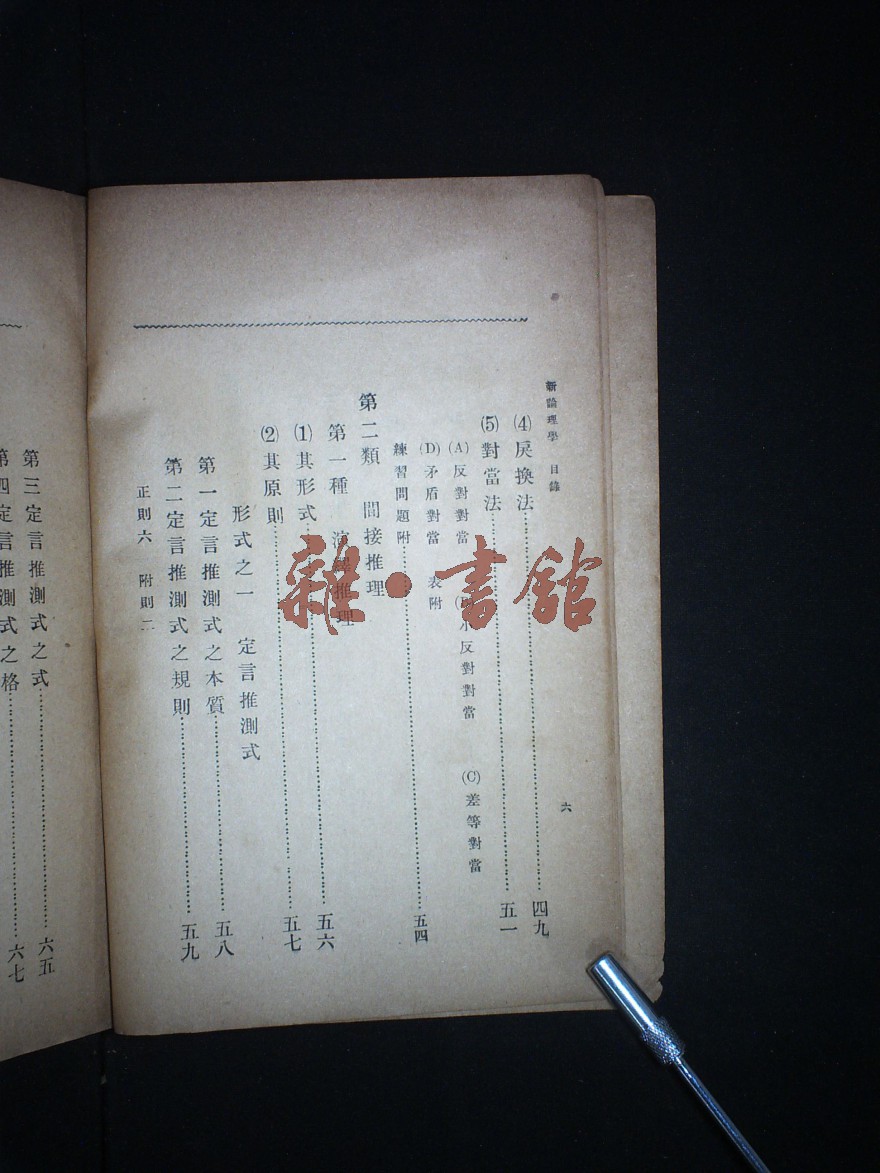 新論理學 目錄
六
(4)戾換法 四九
(5)對當法 五一
(A)反對對當 小反對對當 (C)差等對當
(D)矛盾對當 表附
練習問題附 五四
第二類 間接推理
第一種 演繹推理
(1)其形式 五六
(2)其原則 五七
形式之一 定言推測式
第一定言推測式之本質 五八
第二定言推測式之規則 五九
正則六 附則二
第三定言推測式之式 六五
第四定言推測式之格 六七
雜·書館